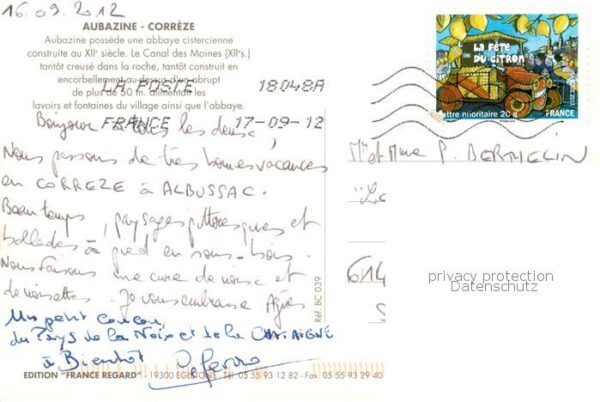 16.09.2012
AUBAZINE - CORRÈZE
Aubazine possède une abbaye cistercienne
construite au XIIe siècle. Le Canal des Moines (XIIe s.)
tantôt creusé dans la roche, tantôt construit en
encorbellement au-dessus d'un abrupt
de plus de 50 m. alimentait les
lavoirs et fontaines du village ainsi que l'abbaye.
LA POSTE 18048A
FRANCE 17-09-12
LA FÊTE
DU CITRON
Lettre prioritaire 20 g FRANCE
Bonjour à tous les deux,
Nous passons de très bonnes vacances
en CORREZE à ALBUSSAC.
Beau temps, paysages pittoresques et
ballades à pied en sous-bois.
Nous faisons une cure de noix et
de noisettes. Je vous embrasse Agnès
Un petit coucou,
du Pays de la Noix et de la CHATAIGNE
à Bientôt
Mr et Mme P. BERTHELIN
614
privacy protection
Datenschutz
Réf. BC 039
EDITION "FRANCE REGARD" - 19300 EGLETONS - Tél. 05 55 93 12 82 - Fax 05 55 93 29 40